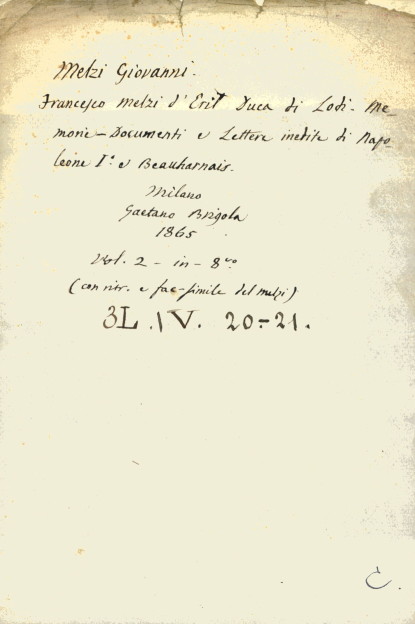 Melzi Giovanni.
Francesco Melzi d'Eril Duca di Lodi. Me-
morie - Documenti e Lettere inedite di Napo-
leone I.° e Beauharnais.
Milano
Gaetano Brigola
1865
Vol. 2 - in - 8.vo
(con ritr. e fac-simile del Melzi)
3L. IV. 20-21.